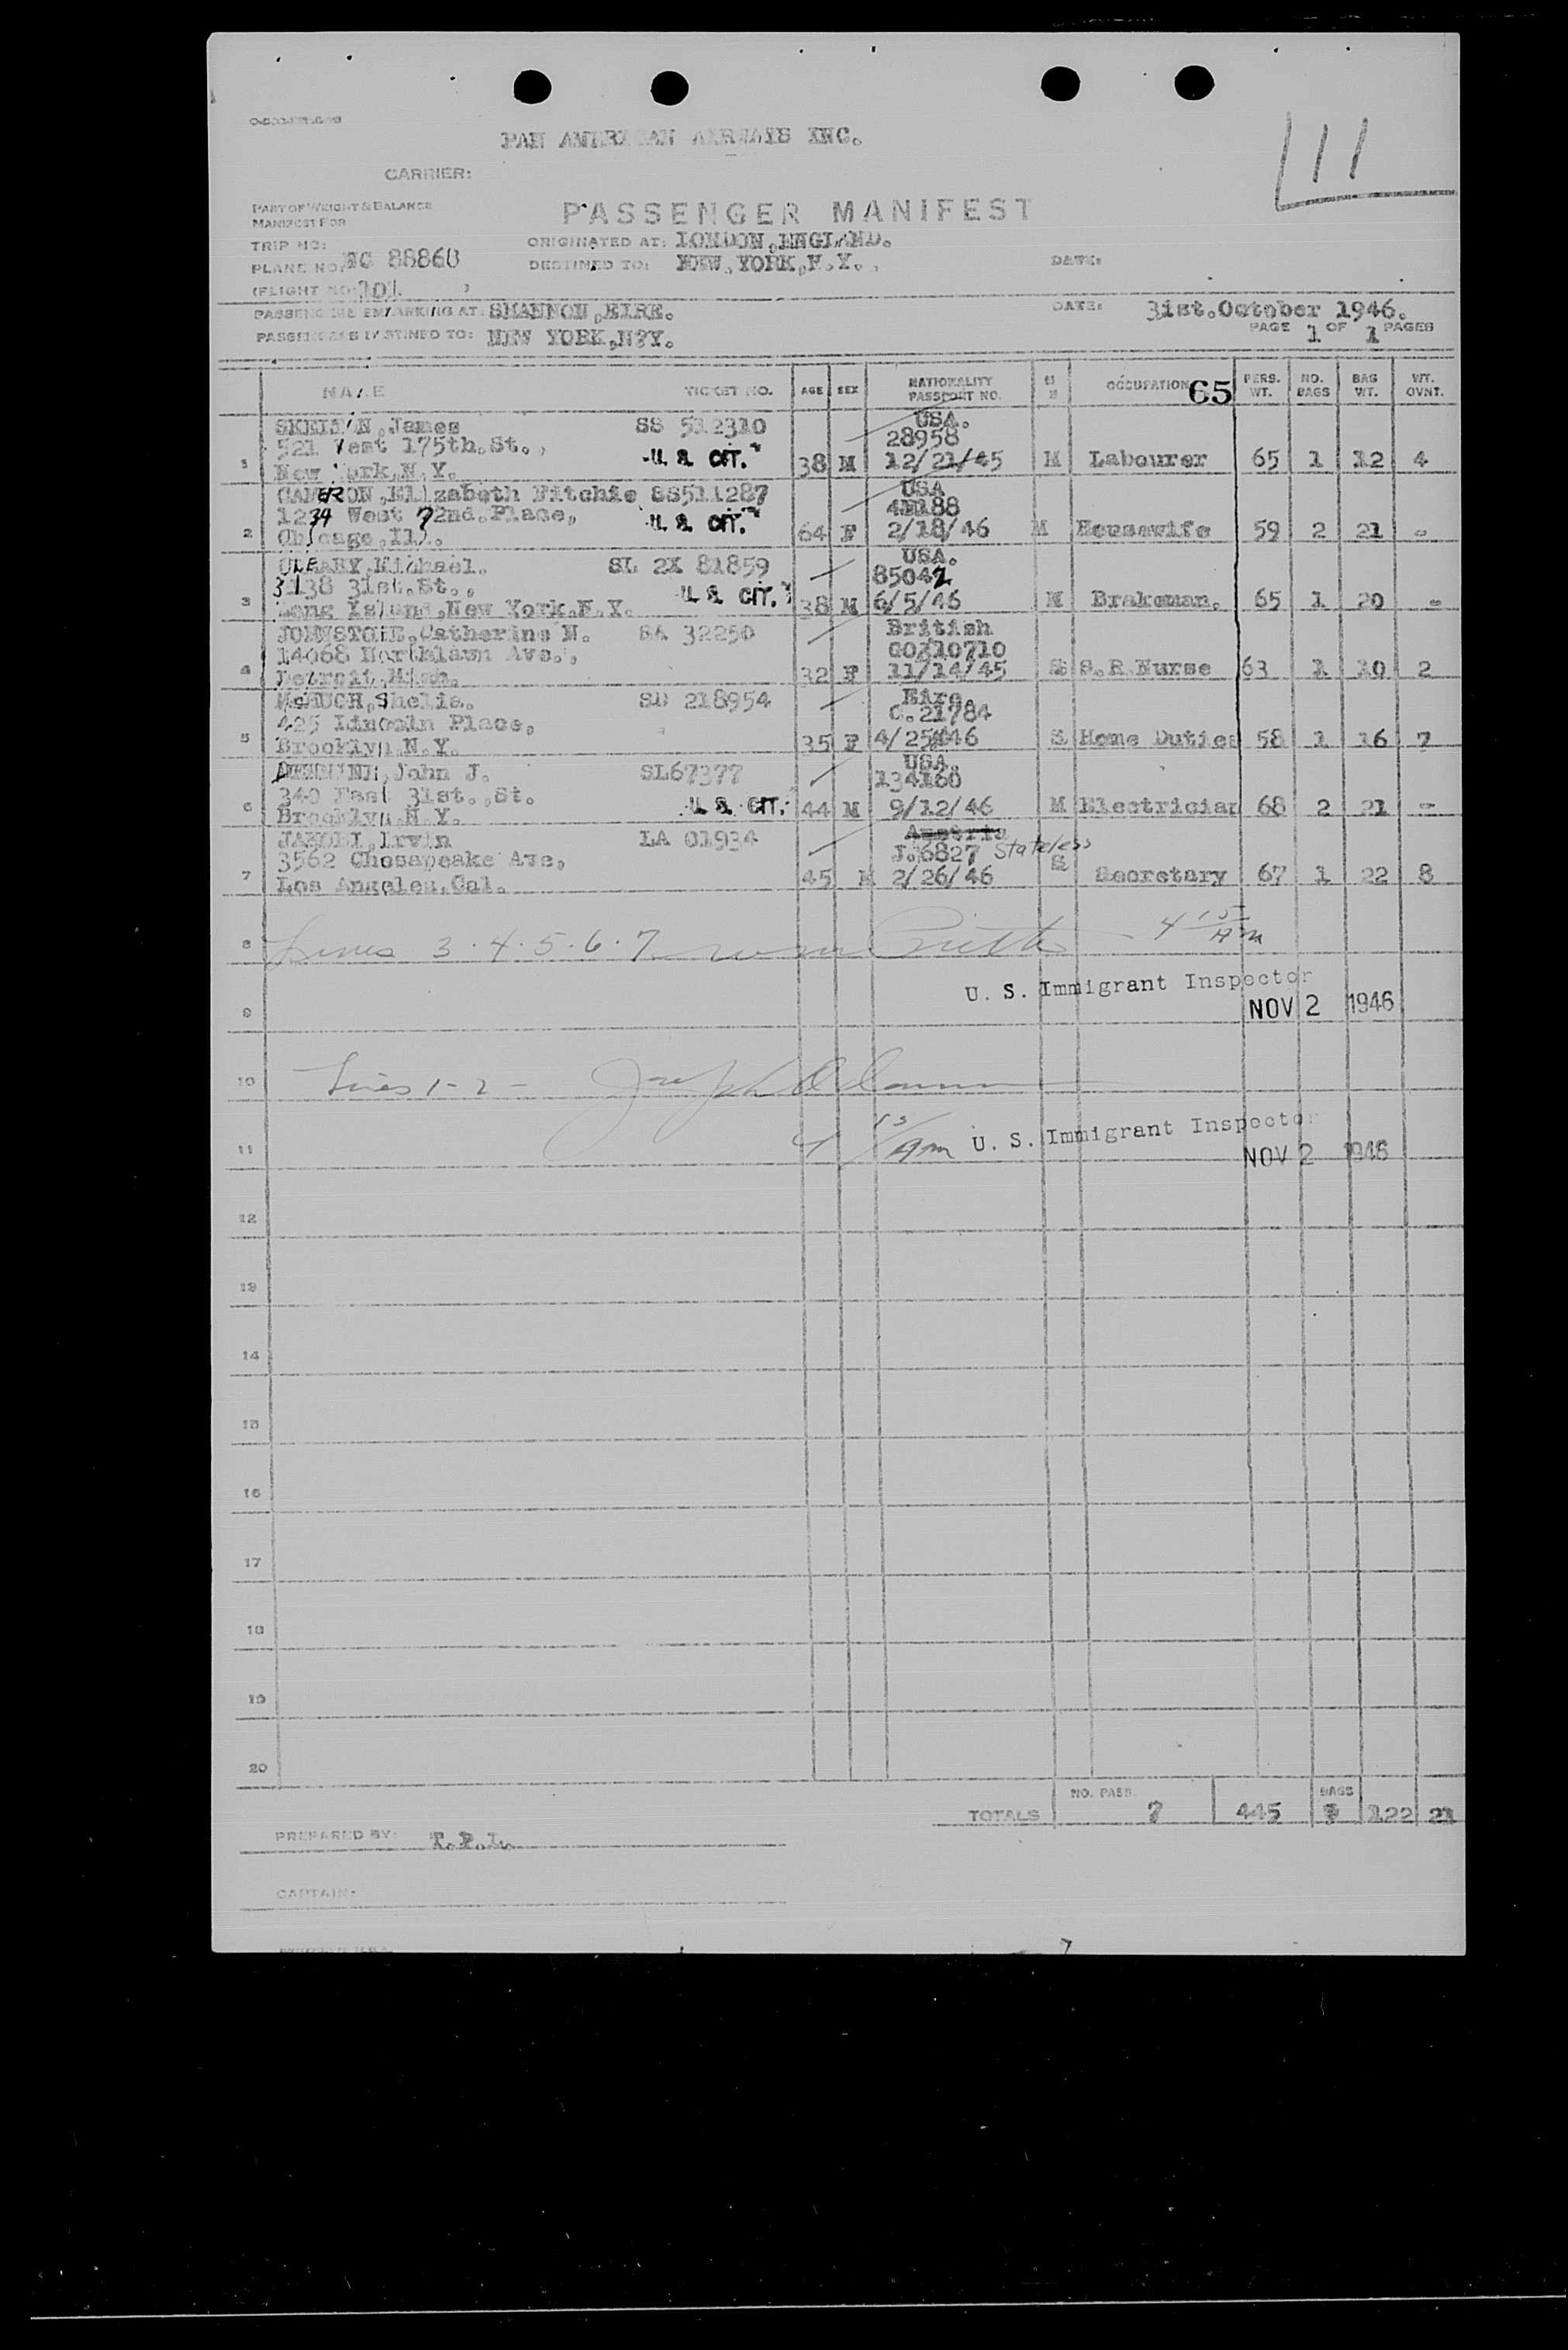 PAN AMERICAN AIRWAYS INC.
111
CARRIER:
PART OF WEIGHT & BALANCE
MANIFEST FOR
PASSENGER MANIFEST
TRIP NO:
ORIGINATED AT: LONDON,ENGLAND.
PLANE NO. NC 88860
DESTINED TO: NEW,YORK,N.Y.,
DATE:
(FLIGHT NO. 101 )
PASSENGERS EMBARKING AT: SHANNON,EIRE.
DATE: 31st.October 1946.
PASSENGERS DESTINED TO: NEW YORK,N?Y.
PAGE 1 OF 1 PAGES
NAME TICKET NO. AGE SEX NATIONALITY PASSPORT NO. OCCUPATION 65 PERS. WT. NO. BAGS BAG WT. WT. OVNT.
James SS 512310 USA.
521 West 175th.St., 28958
1 New York,N.Y. U. S. CIT. 38 M 12/21/45 M Labourer 65 1 12 4
CAMERON,Elizabeth Ritchie SS511287 USA
1234 West 72nd.Place,
2 Chicago,Ill. U. S. CIT. 64 F 2/18/46 M Housewife 59 2 21 -
OLEARY,Michael. SL 2X 81859 USA.
3138 31st.St., 85042
3 Long Island,New York.N.Y. U. S. CIT. 38 M 6/5/46 M Brakeman. 65 1 20 -
JOHNSTONE,Catherine M. SA 32250 British
14068 Northlawn Ave., COZ10710
4 Detroit,Mich. 32 F 11/14/45 S S.R.Nurse 63 1 10 2
McHUGH,Shelia. SD 218954 Eire.
425 Lincoln Place, C.21784
5 Brooklyn,N.Y. 35 F 4/25/46 S Home Duties 58 1 16 7
John J. SL67377 USA.
340 East 31st.,St. 134160
6 Brooklyn,N.Y. U. S. CIT. 44 M 9/12/46 M Electrician 68 2 21 -
JAKOBI,Irvin LA 01934 Austria
3562 Chesapeake Ave, J.6827 Stateless
7 Los Angeles,Cal. 45 M 2/26/46 S Secretary 67 1 22 8
8 Lines 3.4.5.6.7 4 15 AM
U. S. Immigrant Inspector
9 NOV 2 1946
10 Lines 1-2 - Joseph
11 4 15 AM U. S. Immigrant Inspector
NOV 2 1946
12
13
14
15
16
17
18
19
20
TOTALS NO. PASS. 7 445 BAGS 9 122 21
PREPARED BY: T.P.L.
CAPTAIN: